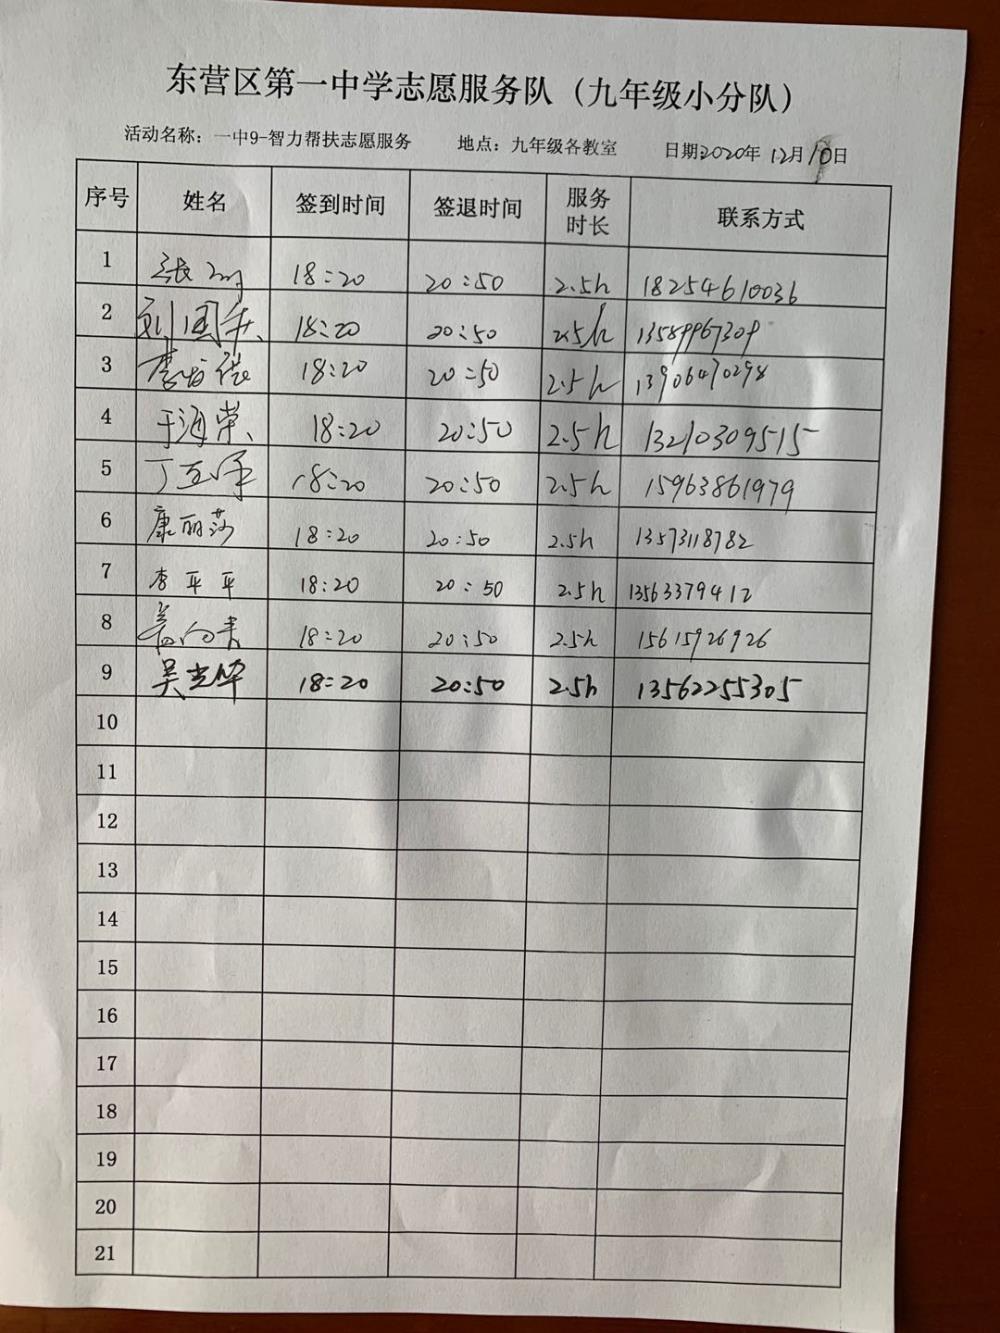 东营区第一中学志愿服务队（九年级小分队）
活动名称：一中9-智力帮扶志愿服务 地点：九年级各教室 日期2020年12月10日
序号 姓名 签到时间 签退时间 服务时长 联系方式
1 18:20 20:50 2.5h 18254610036
2 18:20 20:50 2.5h 13589967309
3 18:20 20:50 2.5h 13906470298
4 于海荣 18:20 20:50 2.5h 13210309515
5 18:20 20:50 2.5h 15963861979
6 康丽莎 18:20 20:50 2.5h 13573118782
7 李平平 18:20 20:50 2.5h 13563379412
8 18:20 20:50 2.5h 15615926926
9 吴光华 18:20 20:50 2.5h 13562255305
10
11
12
13
14
15
16
17
18
19
20
21